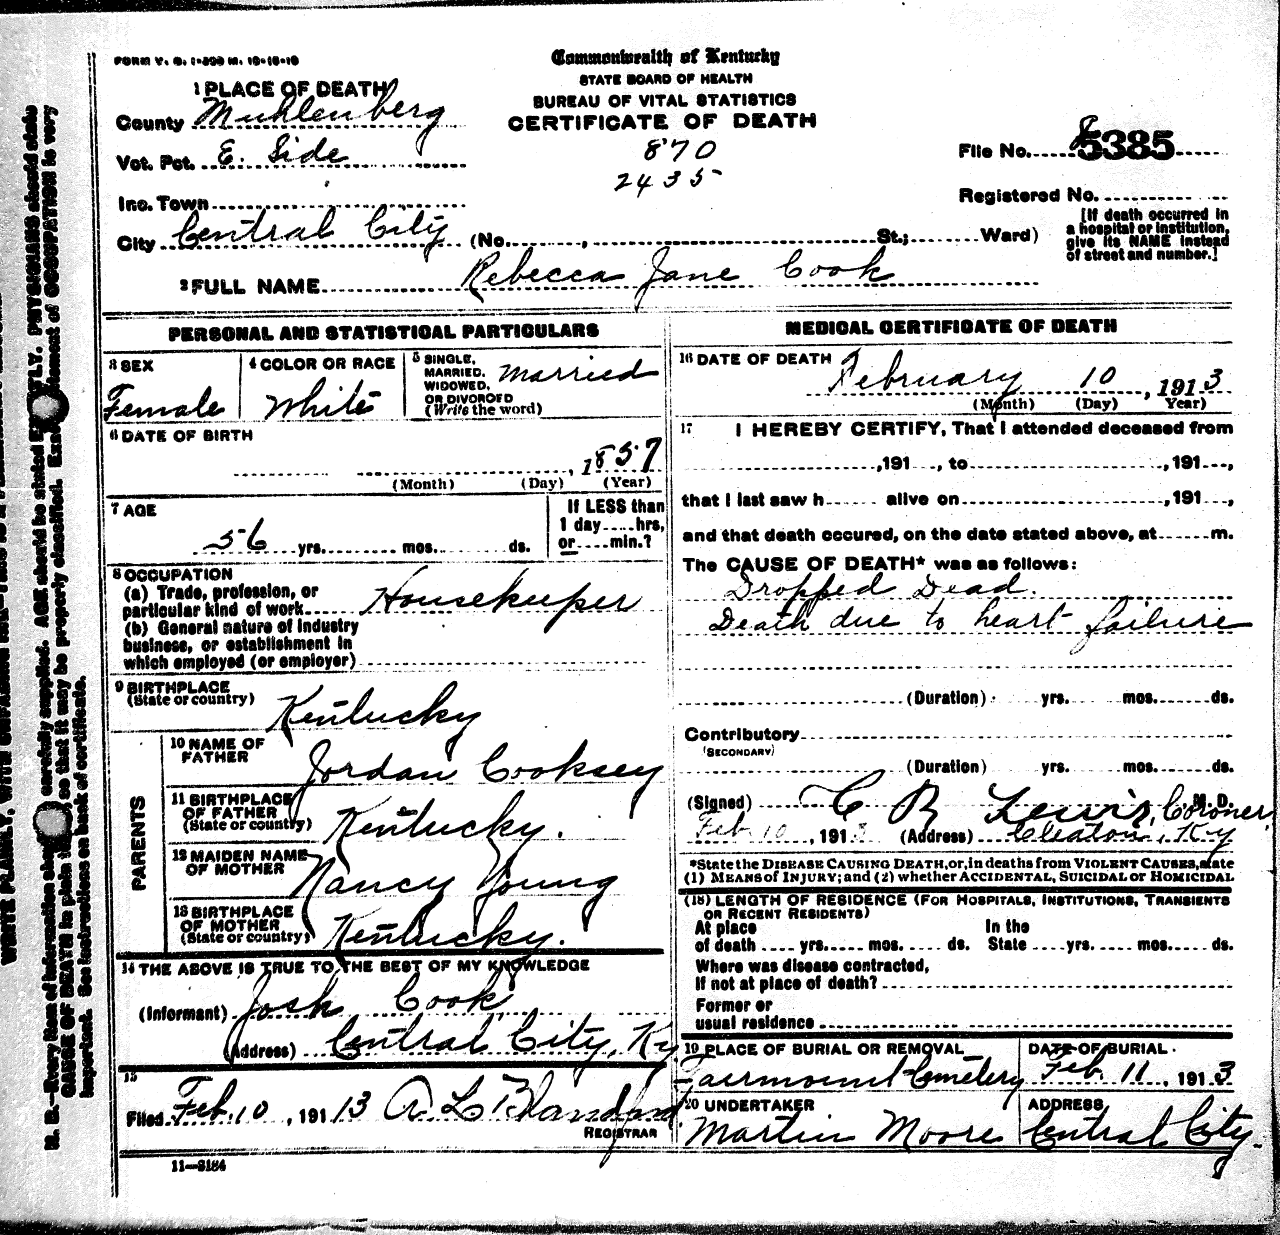 FORM V. S. 1-300 M. 10-18-10
Commonwealth of Kentucky
STATE BOARD OF HEALTH
BUREAU OF VITAL STATISTICS
CERTIFICATE OF DEATH
870
2435
1 PLACE OF DEATH
County Muhlenberg
Vot. Pct. E. Side
Inc. Town
City Central City (No. , St.; Ward)
File No. 5385
Registered No.
[If death occurred in
a hospital or institution,
give its NAME instead
of street and number.]
2 FULL NAME Rebecca Jane Cook
PERSONAL AND STATISTICAL PARTICULARS
3 SEX
Female
4 COLOR OR RACE
White
5 SINGLE,
MARRIED,
WIDOWED,
OR DIVORCED
(Write the word)
Married
6 DATE OF BIRTH
, 1857
(Month) (Day) (Year)
7 AGE
56 yrs. mos. ds.
If LESS than
1 day....hrs,
or....min.?
8 OCCUPATION
(a) Trade, profession, or
particular kind of work Housekeeper
(b) General nature of industry
business, or establishment in
which employed (or employer)
9 BIRTHPLACE
(State or country) Kentucky
PARENTS
10 NAME OF
FATHER Jordan Cooksey
11 BIRTHPLACE
OF FATHER
(State or country) Kentucky.
12 MAIDEN NAME
OF MOTHER Nancy Young
13 BIRTHPLACE
OF MOTHER
(State or country) Kentucky.
14 THE ABOVE IS TRUE TO THE BEST OF MY KNOWLEDGE
(Informant) Josh Cook
(Address) Central City, Ky
15
Filed Feb. 10, 191 13 A L Blandford
REGISTRAR
11—3184
MEDICAL CERTIFICATE OF DEATH
16 DATE OF DEATH
February 10, 1913
(Month) (Day) Year)
17 I HEREBY CERTIFY, That I attended deceased from
,191 , to ,191 ,
that I last saw h alive on ,191 ,
and that death occured, on the date stated above, at m.
The CAUSE OF DEATH* was as follows:
Dropped Dead.
Death due to heart failure
(Duration) yrs. mos. ds.
Contributory
(SECONDARY)
(Duration) yrs. mos. ds.
(Signed) C R Lewis, Coroner, M.D.
Feb. 10, 1913 (Address) Cleaton, Ky
*State the DISEASE CAUSING DEATH, or, in deaths from VIOLENT CAUSES, state
(1) MEANS of INJURY; and (2) whether ACCIDENTAL, SUICIDAL or HOMICIDAL
(18) LENGTH OF RESIDENCE (FOR HOSPITALS, INSTITUTIONS, TRANSIENTS
OR RECENT RESIDENTS)
At place In the
of death yrs. mos. ds. State yrs. mos. ds.
Where was disease contracted,
If not at place of death?
Former or
usual residence
19 PLACE OF BURIAL OR REMOVAL
Fairmount Cemetery
DATE OF BURIAL
Feb. 11, 1913
20 UNDERTAKER
Martin Moore
ADDRESS
Central City.
N. B.—Every item of information should be carefully supplied. AGE should be stated EXACTLY. PHYSICIANS should state
CAUSE OF DEATH in plain so that it may be properly classified. Exact statement of OCCUPATION is very
important. See instructions on back of certificate.